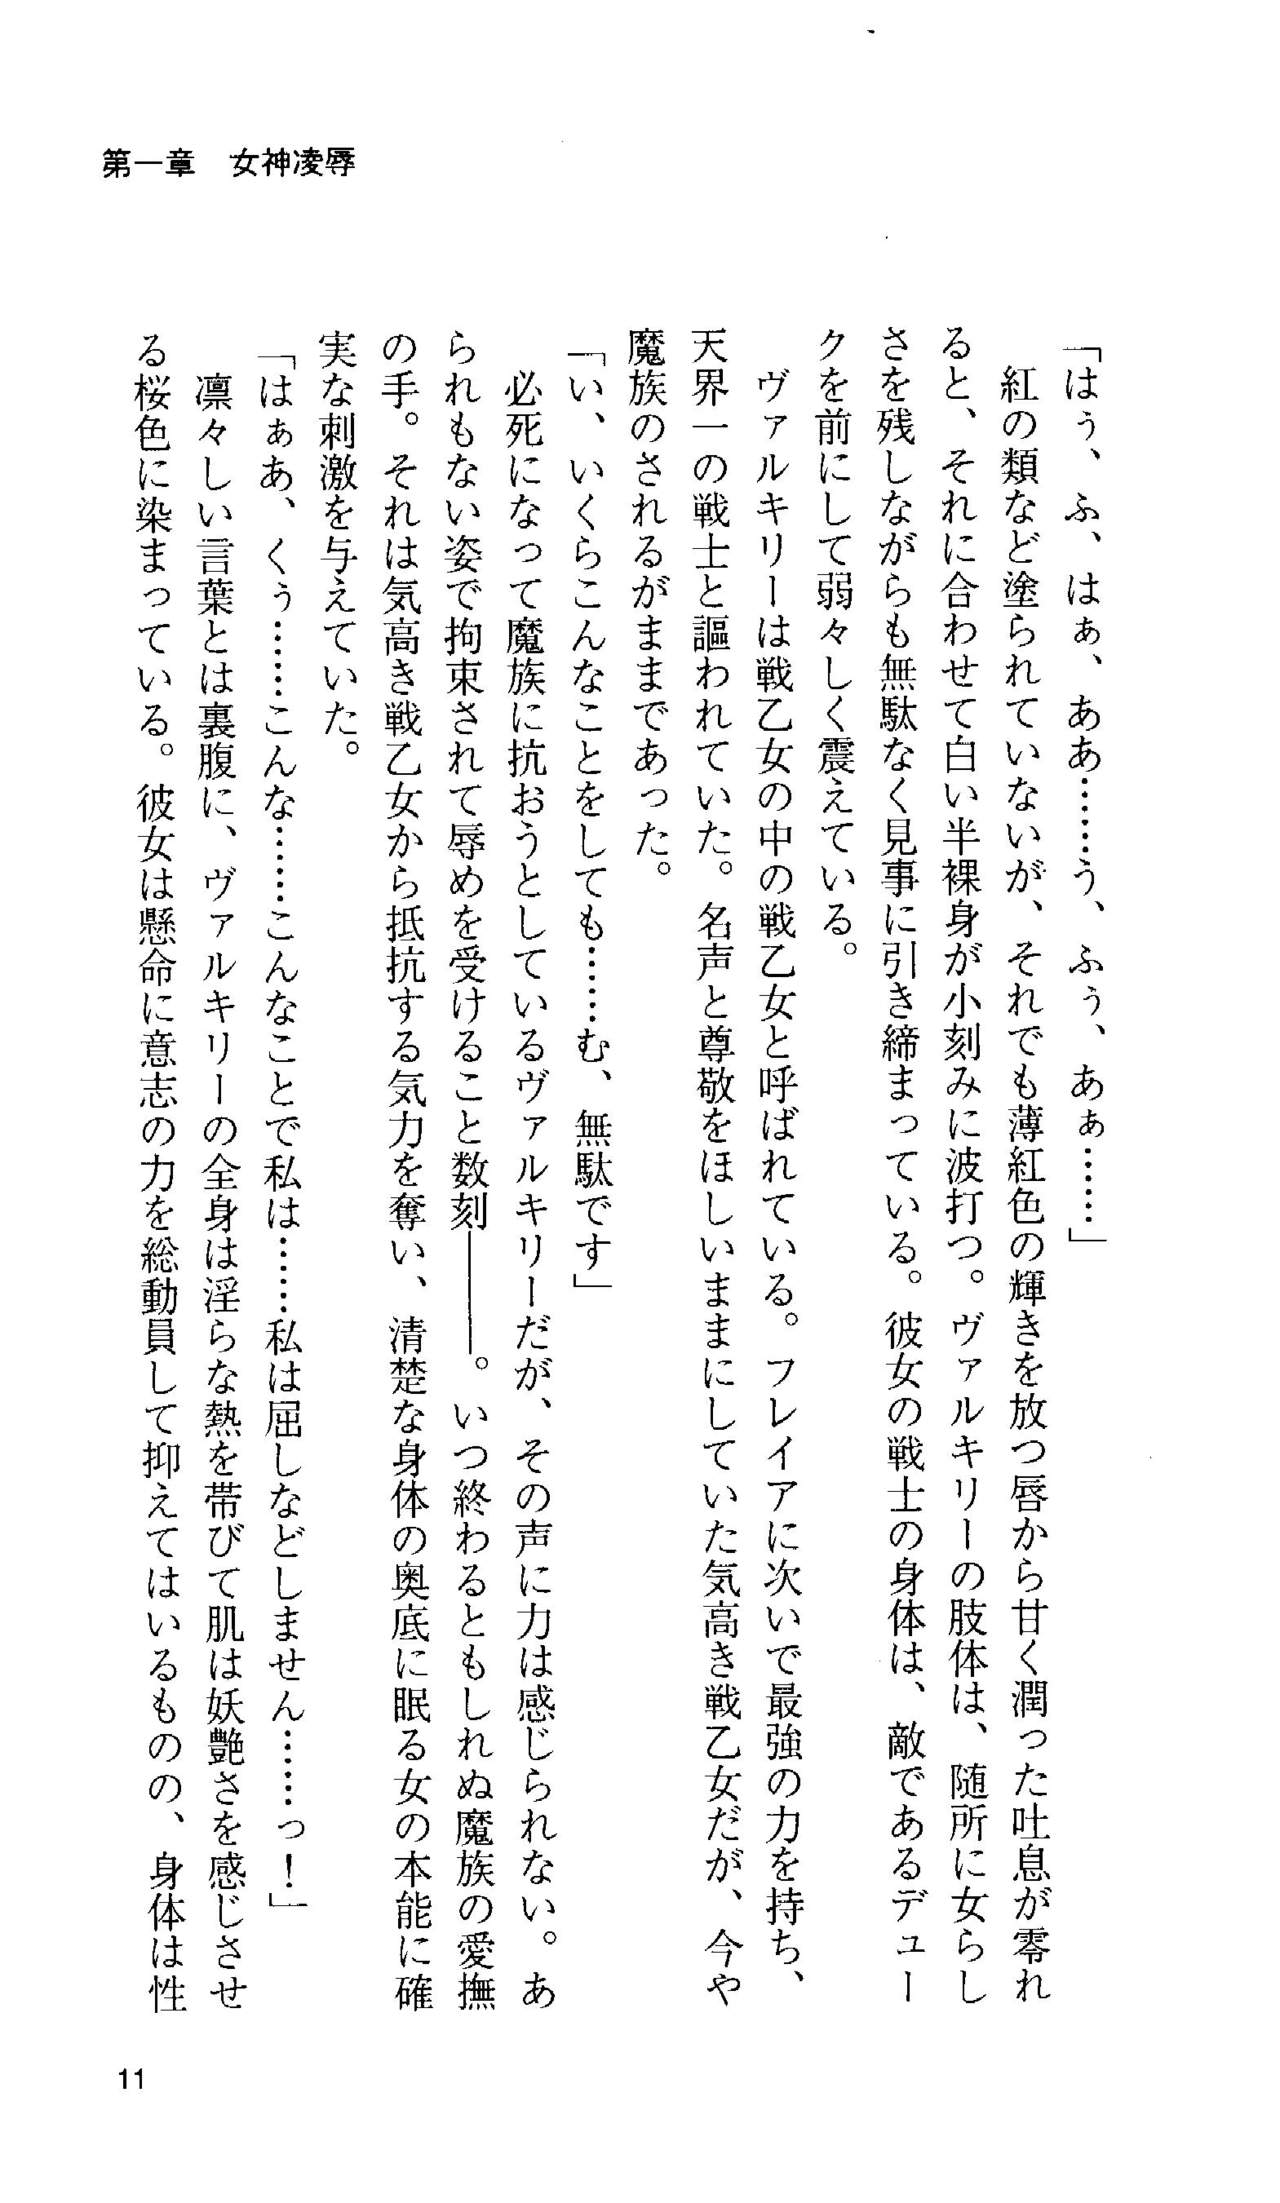 第一章　女神凌辱
「はぅ、ふ、はぁ、ああ……う、ふぅ、あぁ……」
　紅の類など塗られていないが、それでも薄紅色の輝きを放つ唇から甘く潤った吐息が零れ
ると、それに合わせて白い半裸身が小刻みに波打つ。ヴァルキリーの肢体は、随所に女らし
さを残しながらも無駄なく見事に引き締まっている。彼女の戦士の身体は、敵であるデュー
クを前にして弱々しく震えている。
　ヴァルキリーは戦乙女の中の戦乙女と呼ばれている。フレイアに次いで最強の力を持ち、
天界一の戦士と謳われていた。名声と尊敬をほしいままにしていた気高き戦乙女だが、今や
魔族のされるがままであった。
「い、いくらこんなことをしても……む、無駄です」
　必死になって魔族に抗おうとしているヴァルキリーだが、その声に力は感じられない。あ
られもない姿で拘束されて辱めを受けること数刻――。いつ終わるともしれぬ魔族の愛撫
の手。それは気高き戦乙女から抵抗する気力を奪い、清楚な身体の奥底に眠る女の本能に確
実な刺激を与えていた。
「はぁあ、くぅ……こんな……こんなことで私は……私は屈しなどしません……っ！」
　凛々しい言葉とは裏腹に、ヴァルキリーの全身は淫らな熱を帯びて肌は妖艶さを感じさせ
る桜色に染まっている。彼女は懸命に意志の力を総動員して抑えてはいるものの、身体は性
11